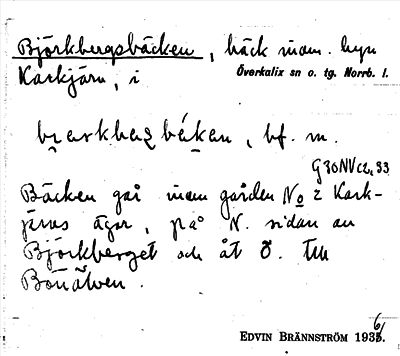 Björkbergsbäcken, bäck inom byn
Karkjärn, i Överkalix sn o. tg. Norrb. l.
bf. m.
G30NV c2, 33
Bäcken går inom gården No 2 Kark-
järns ägor, på N. sidan av
Björkberget och åt Ö. Till
Bönälven.
EDVIN BRÄNNSTRÖM 1936.